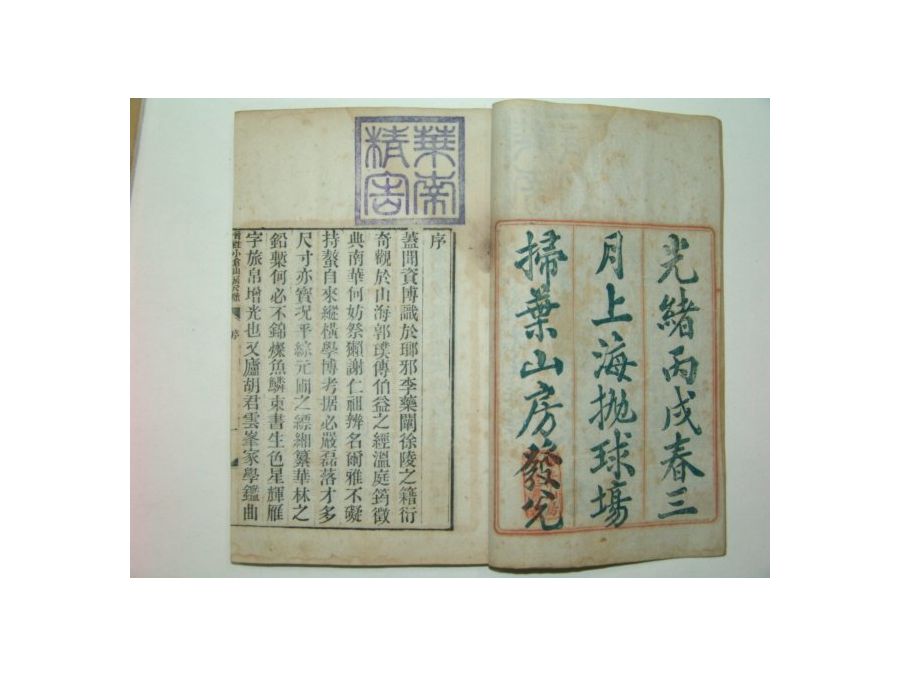 光緒丙戌春三
月上海拋球場
掃葉山房發兌
華南
精舍
序
蓋聞資博識於瑯邪李藥闡徐陵之籍衍
奇觀於山海郭璞傳伯益之經溫庭筠徵
典南華何妨祭獺謝仁祖辨名爾雅不礙
持螯自來縱橫學博考据必嚴磊落才多
尺寸亦寶況乎綜元圃之縹緗纂華林之
鉛槧何必不錦燦魚鱗束書生色星輝雁
字旅帛增光也又廬胡君雲峯家學鑑曲
小倉山房尺牘
序